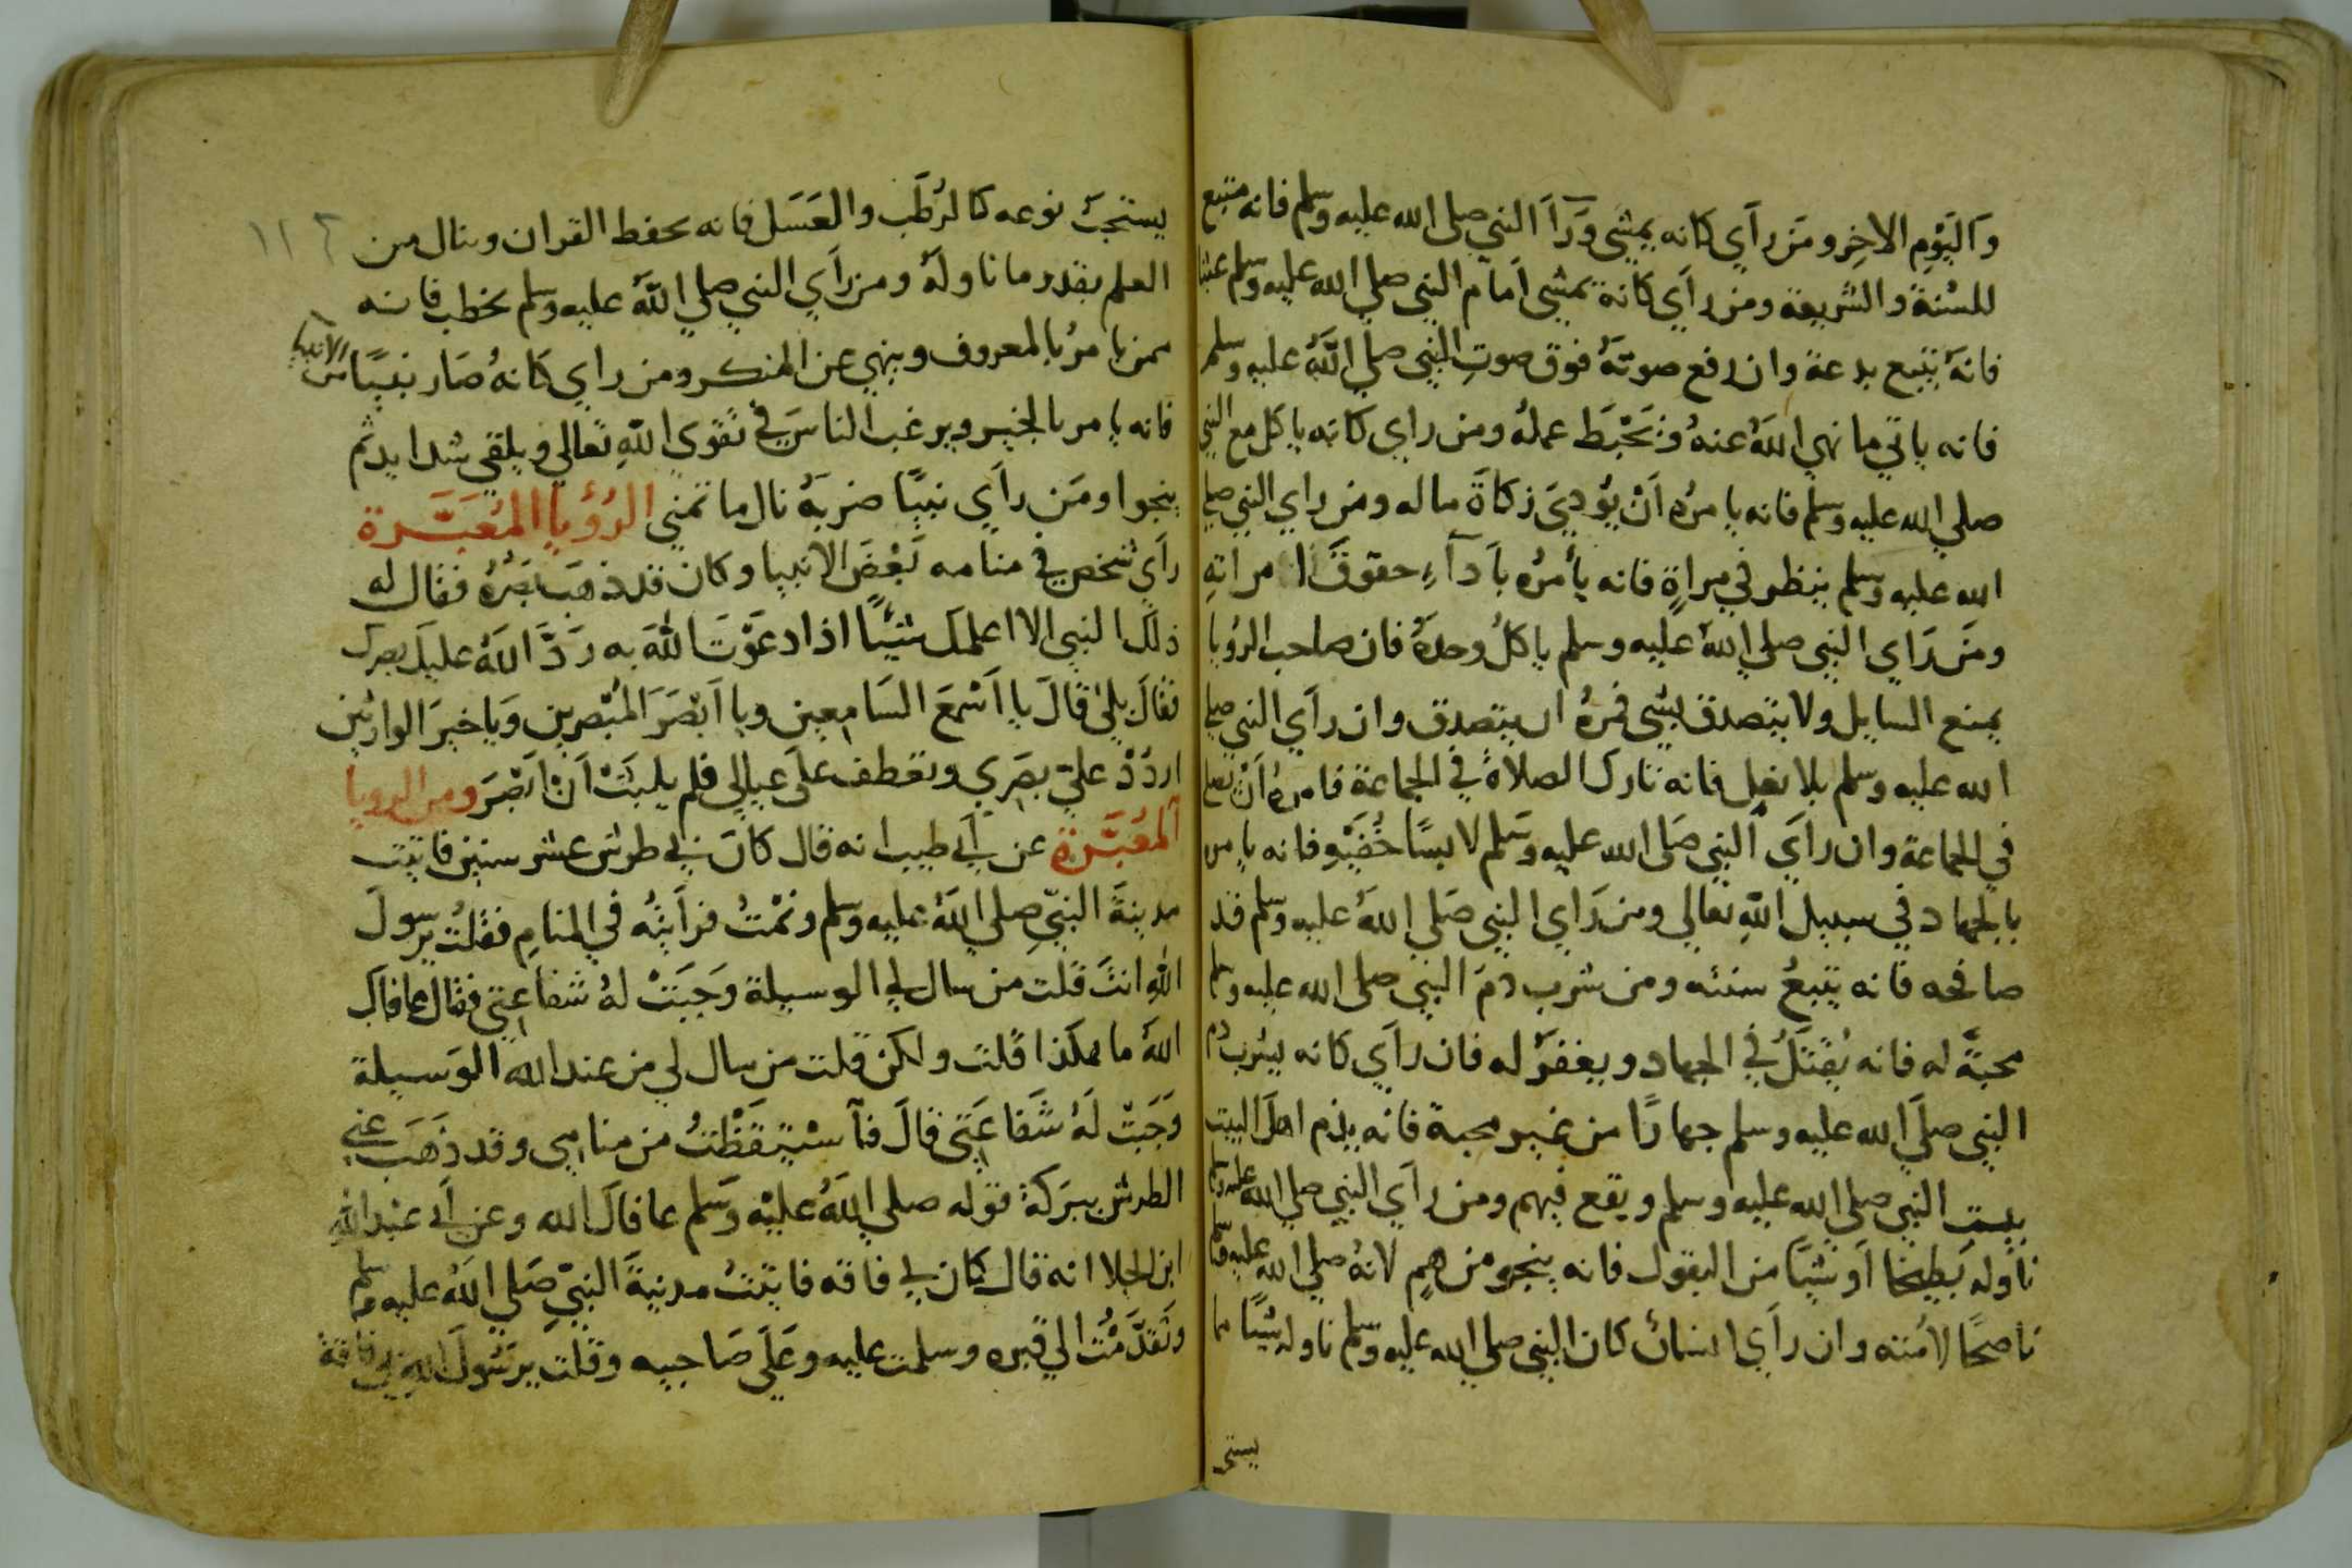 وَاليَوْمِ الاخِرِ ومَن رأي كانه يمشي وَرَآءَ النبي صلى الله عليه وسلم فانه متبع
للسُنة والشريعة ومن رأي كانه يمشي امام النبي صلي الله عليه وسلم
فانهُ يتبع بدعة وان رفع صوتهُ فوق صوتِ النبي صلي اللهُ عليه وسلم
فانه ياتي ما نهي اللهُ عنهُ ويَحْبَط عملهُ ومن راي كانه ياكل مع النبي
صلي الله عليه وسلم فانه يامرُه اَنْ يؤديَ زكاةَ ماله ومن راي النبي صلي
الله عليه وسلم ينظر في مراةٍ فانه يأمرُه باَدآءِ حقوق امراتهِ
ومَن رَاي النبي صلي اللهُ عليه وسلم ياكلُ وحدهُ فان صاحب الرؤيا
يمنع السايل ولا يتصدق بشي فمرهُ ان يتصدق وان رأي النبي صلي
الله عليه وسلم بلا نعلٍ فانه تارك الصلاة في الجماعة فامرهُ اَنْ يصلي
في الجماعة وان رأيَ النبي صَلي الله عليه وسَلم لابسًا خُفَّيْهِ فانه يامر
بالجهاد في سبيل اللهِ تعالي ومن رَاي النبي صَلي اللهُ عليه وسلم قد
صافحه فانه يتبعُ سنته ومن شرب دمَ النبي صلى الله عليه وسلم
محبةً له فانه يُقْتَلُ في الجهاد ويغفرُ له فان رأي كانه يشرب دم
النبي صلي الله عليه وسلم جهارًا من غير محبة فانه يذم اهلَ البيت
بيتِ النبي صلي الله عليه وسلم ويقع فيهم ومن رأي النبي صلي الله عليه وسلم
ناوله بطيخا اَو شيًا من البقول فانه ينجو من همٍ لانهُ صلي الله عليه وسلم
ناصحًا لامته وان رأي انسانٌ كان النبي صلي الله عليه وسلم ناوله شيًا مما
يستحب
يستحبّ نوعه كالرُطَب والعَسَل فانه يحفظ القران وينال من
١١٢
العلم بقدر ما ناولهُ ومن رأي النبي صلي اللهُ عليه وسلم يخطب فانه
ممن يامرُ بالمعروف وينهي عن المنكر ومن راي كانهُ صَار نبيًا من الانبيا
فانه يامر بالخير ويرغب الناسَ في تقوى اللهِ تعالي ويلقي شدايد ثم
ينجوا ومَن رأي نبيًا ضربَهُ نال ما تمني الرُؤيا المُعبَّرة
رأي شخص في منامه بَعْضَ الانبيا وكان قد ذهبَ بصَرُهُ فقال له
ذلك النبي الا اعلمك شيئًا اذا دعَوْتَ اللهَ به رَدَّ اللهُ عليكَ بصرك
فقالَ بلي قالَ يا اَسْمَعَ السَامعين ويا اَبْصَرَ المُبْصرين وَيا خيرَ الوارثين
ارْدُدْ عليَّ بصَري وتعطف علَى عيالي فلم يلبثْ اَنْ اَبْصَرَ ومن الرويا
المُعَبَّرة عن اَبي طيب انه قال كانَ بي طرش عشر سنين فاتيت
مدينةَ النبيّ صلي اللهُ عليه وسلم ونمْتُ فرأيتُه في المنامِ فقلتُ يرسولَ
اللهِ انتَ قلت من سال لي الوسيلة وَجَبَتْ لهُ شفاعتي فقال عافاك
اللهُ ما هكذا قلت ولكن قلت من سال لي من عند الله الوَسيلة
وَجَبَتْ لَهُ شَفاعَتي قالَ فآستيقَظْتُ من منامي وقد ذهَبَ عني
الطرش ببَركة قوله صلي اللهُ عليْه وَسَلم عافاك الله وعن اَبي عبْد اللهِ
ابن الجلا انه قال كان بي فاقه فاتيتُ مدينةَ النبيّ صَلي اللهُ عليه وسلم
وتقدَّمْتُ الي قبره وسلمت عليه وعَلَى صَاحبيه وقلت يرسُولَ اللهِ بي فاقة